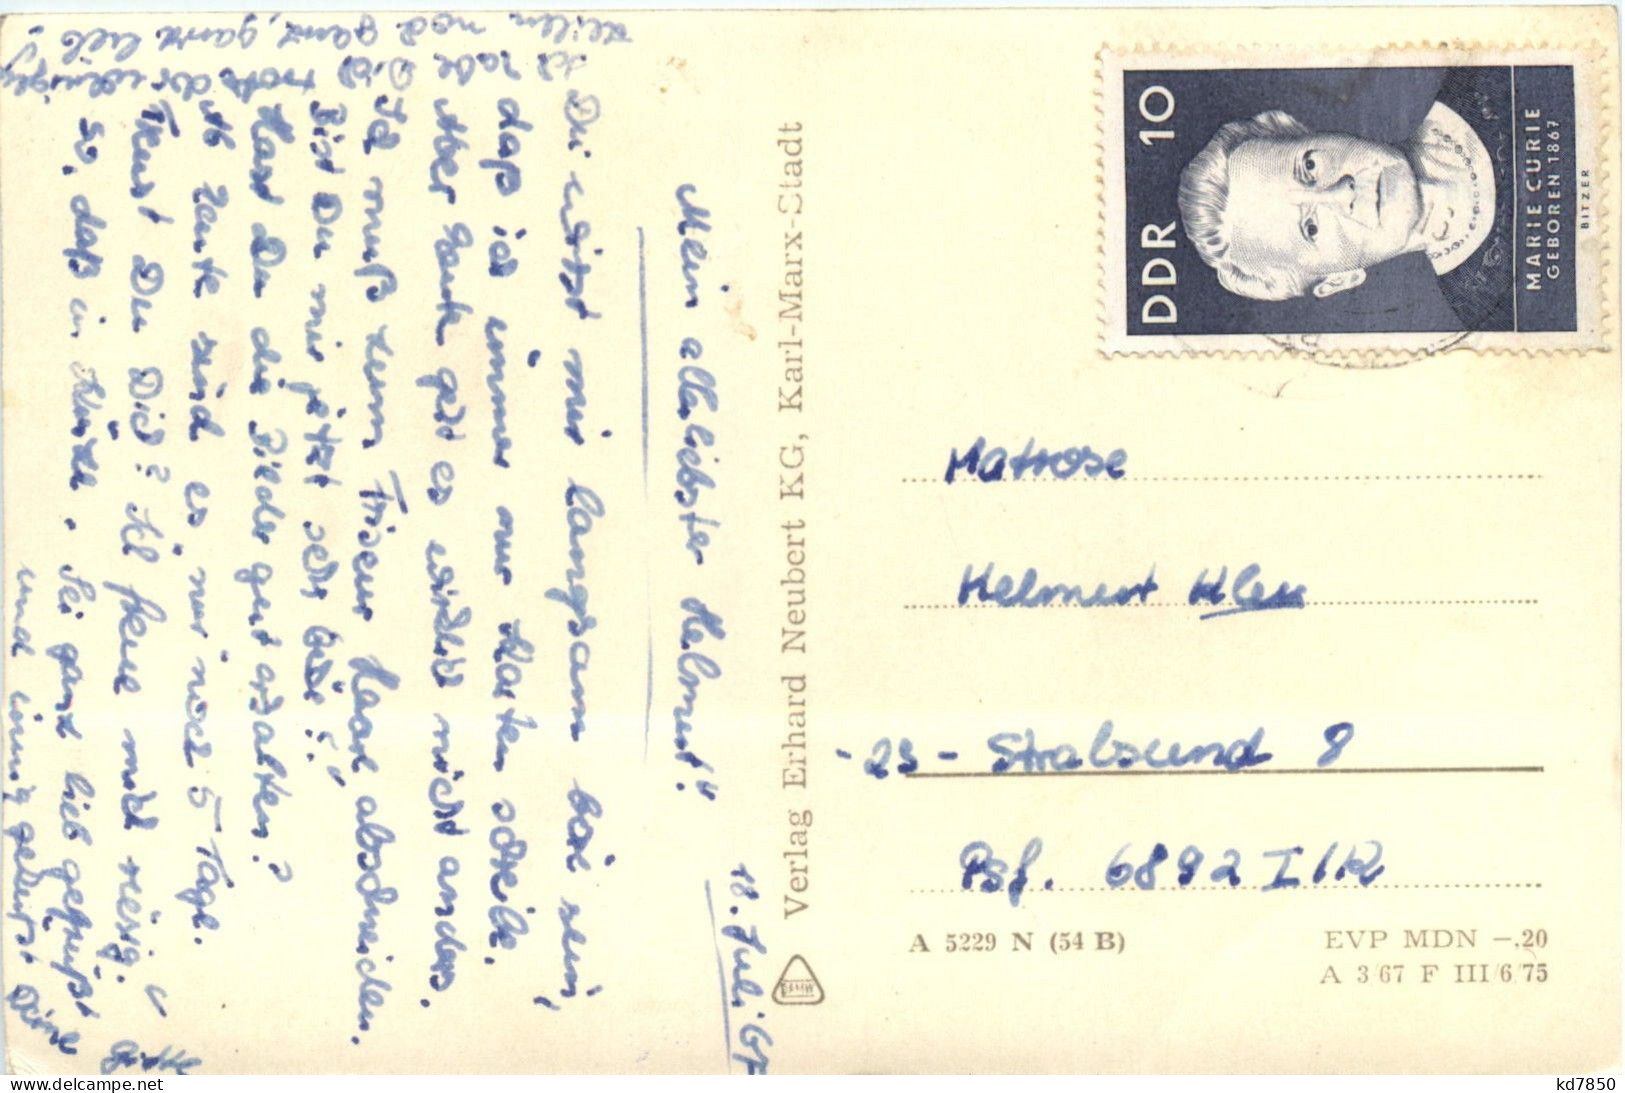 18. Juli 67
Mein allerliebster Helmut!
Du wirst mir langsam böse sein,
daß ich immer nur Karten schreibe.
Aber heute geht es wirklich nicht anders.
Ich muß zum Friseur Haar abschneiden.
Bist Du mir jetzt sehr böse?
Hast Du die Bilder gut erhalten?
Ab heute sind es nur noch 5 Tage.
Freust Du Dich? Ich freue mich riesig.
so, daß in Kürze. Sei ganz lieb gegrüßt
und innig geküßt Deine
Ich habe Dich trotz der wenigen
Zeilen noch ganz, ganz lieb!
Verlag Erhard Neubert KG, Karl-Marx-Stadt
DDR 10
MARIE CURIE
GEBOREN 1867
BITZER
Matrose
Helmut
23 - Stralsund 8
Psf. 6892 I/K
A 5229 N (54 B)
EVP MDN -,20
A 3/67 F III/6/75
delcampe.net
kd7850